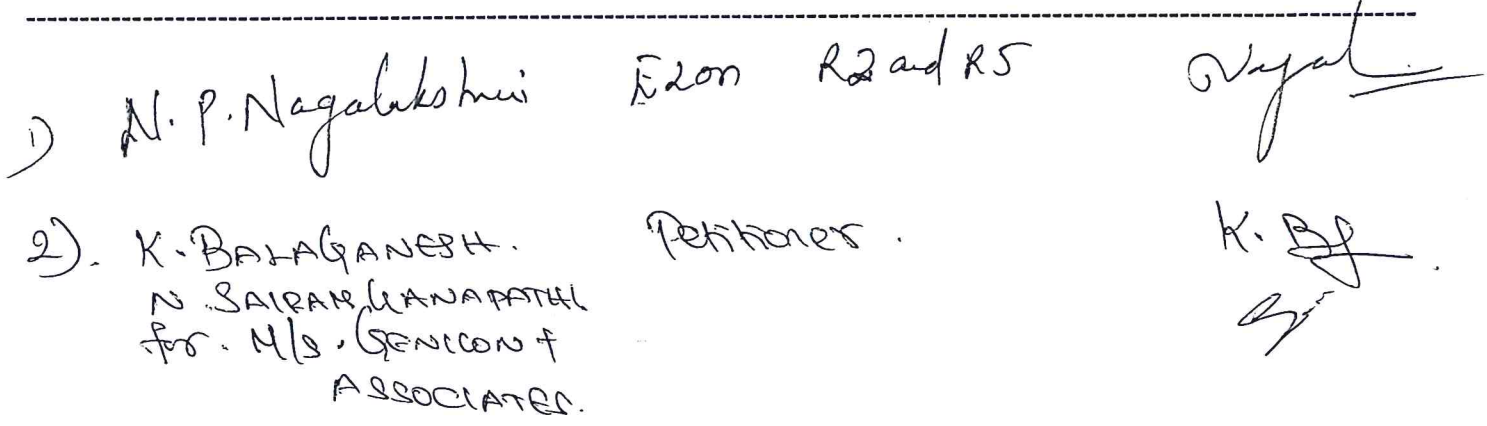 1) N. P. Nagalakshmi E2on R2 and R5
2). K. BALAGANESH. Petitioner.
N. SAIRAM GANAPATHI
for. M/s. GENICON &
ASSOCIATES.
K. B